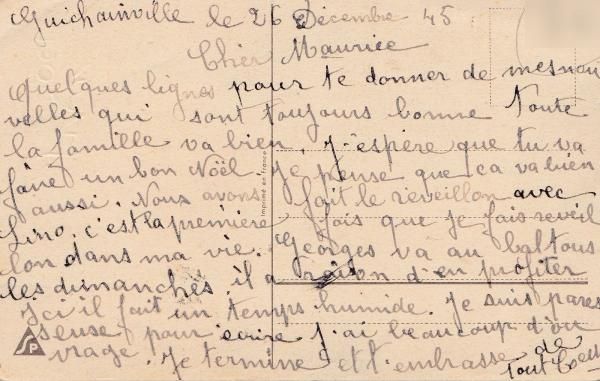 Guichainville le 26 Décembre 45
Cher Maurice
Quelques lignes pour te donner de mes nou
velles qui sont toujours bonne Toute
la famille va bien. J'espère que tu va
faire un bon Noël. Je pense que ça va bien
aussi. Nous avons fait le reveillon avec
Lino, c'est la première fois que je fais reveil
lon dans ma vie. Georges va au bal tous
les dimanches, il a raison d'en profiter
Ici il fait un temps humide. Je suis pares
seuse pour ecrire. J'ai beaucoup d'ou
vrage. Je termine et t'embrasse de
tout Coeur
Imprimé en France